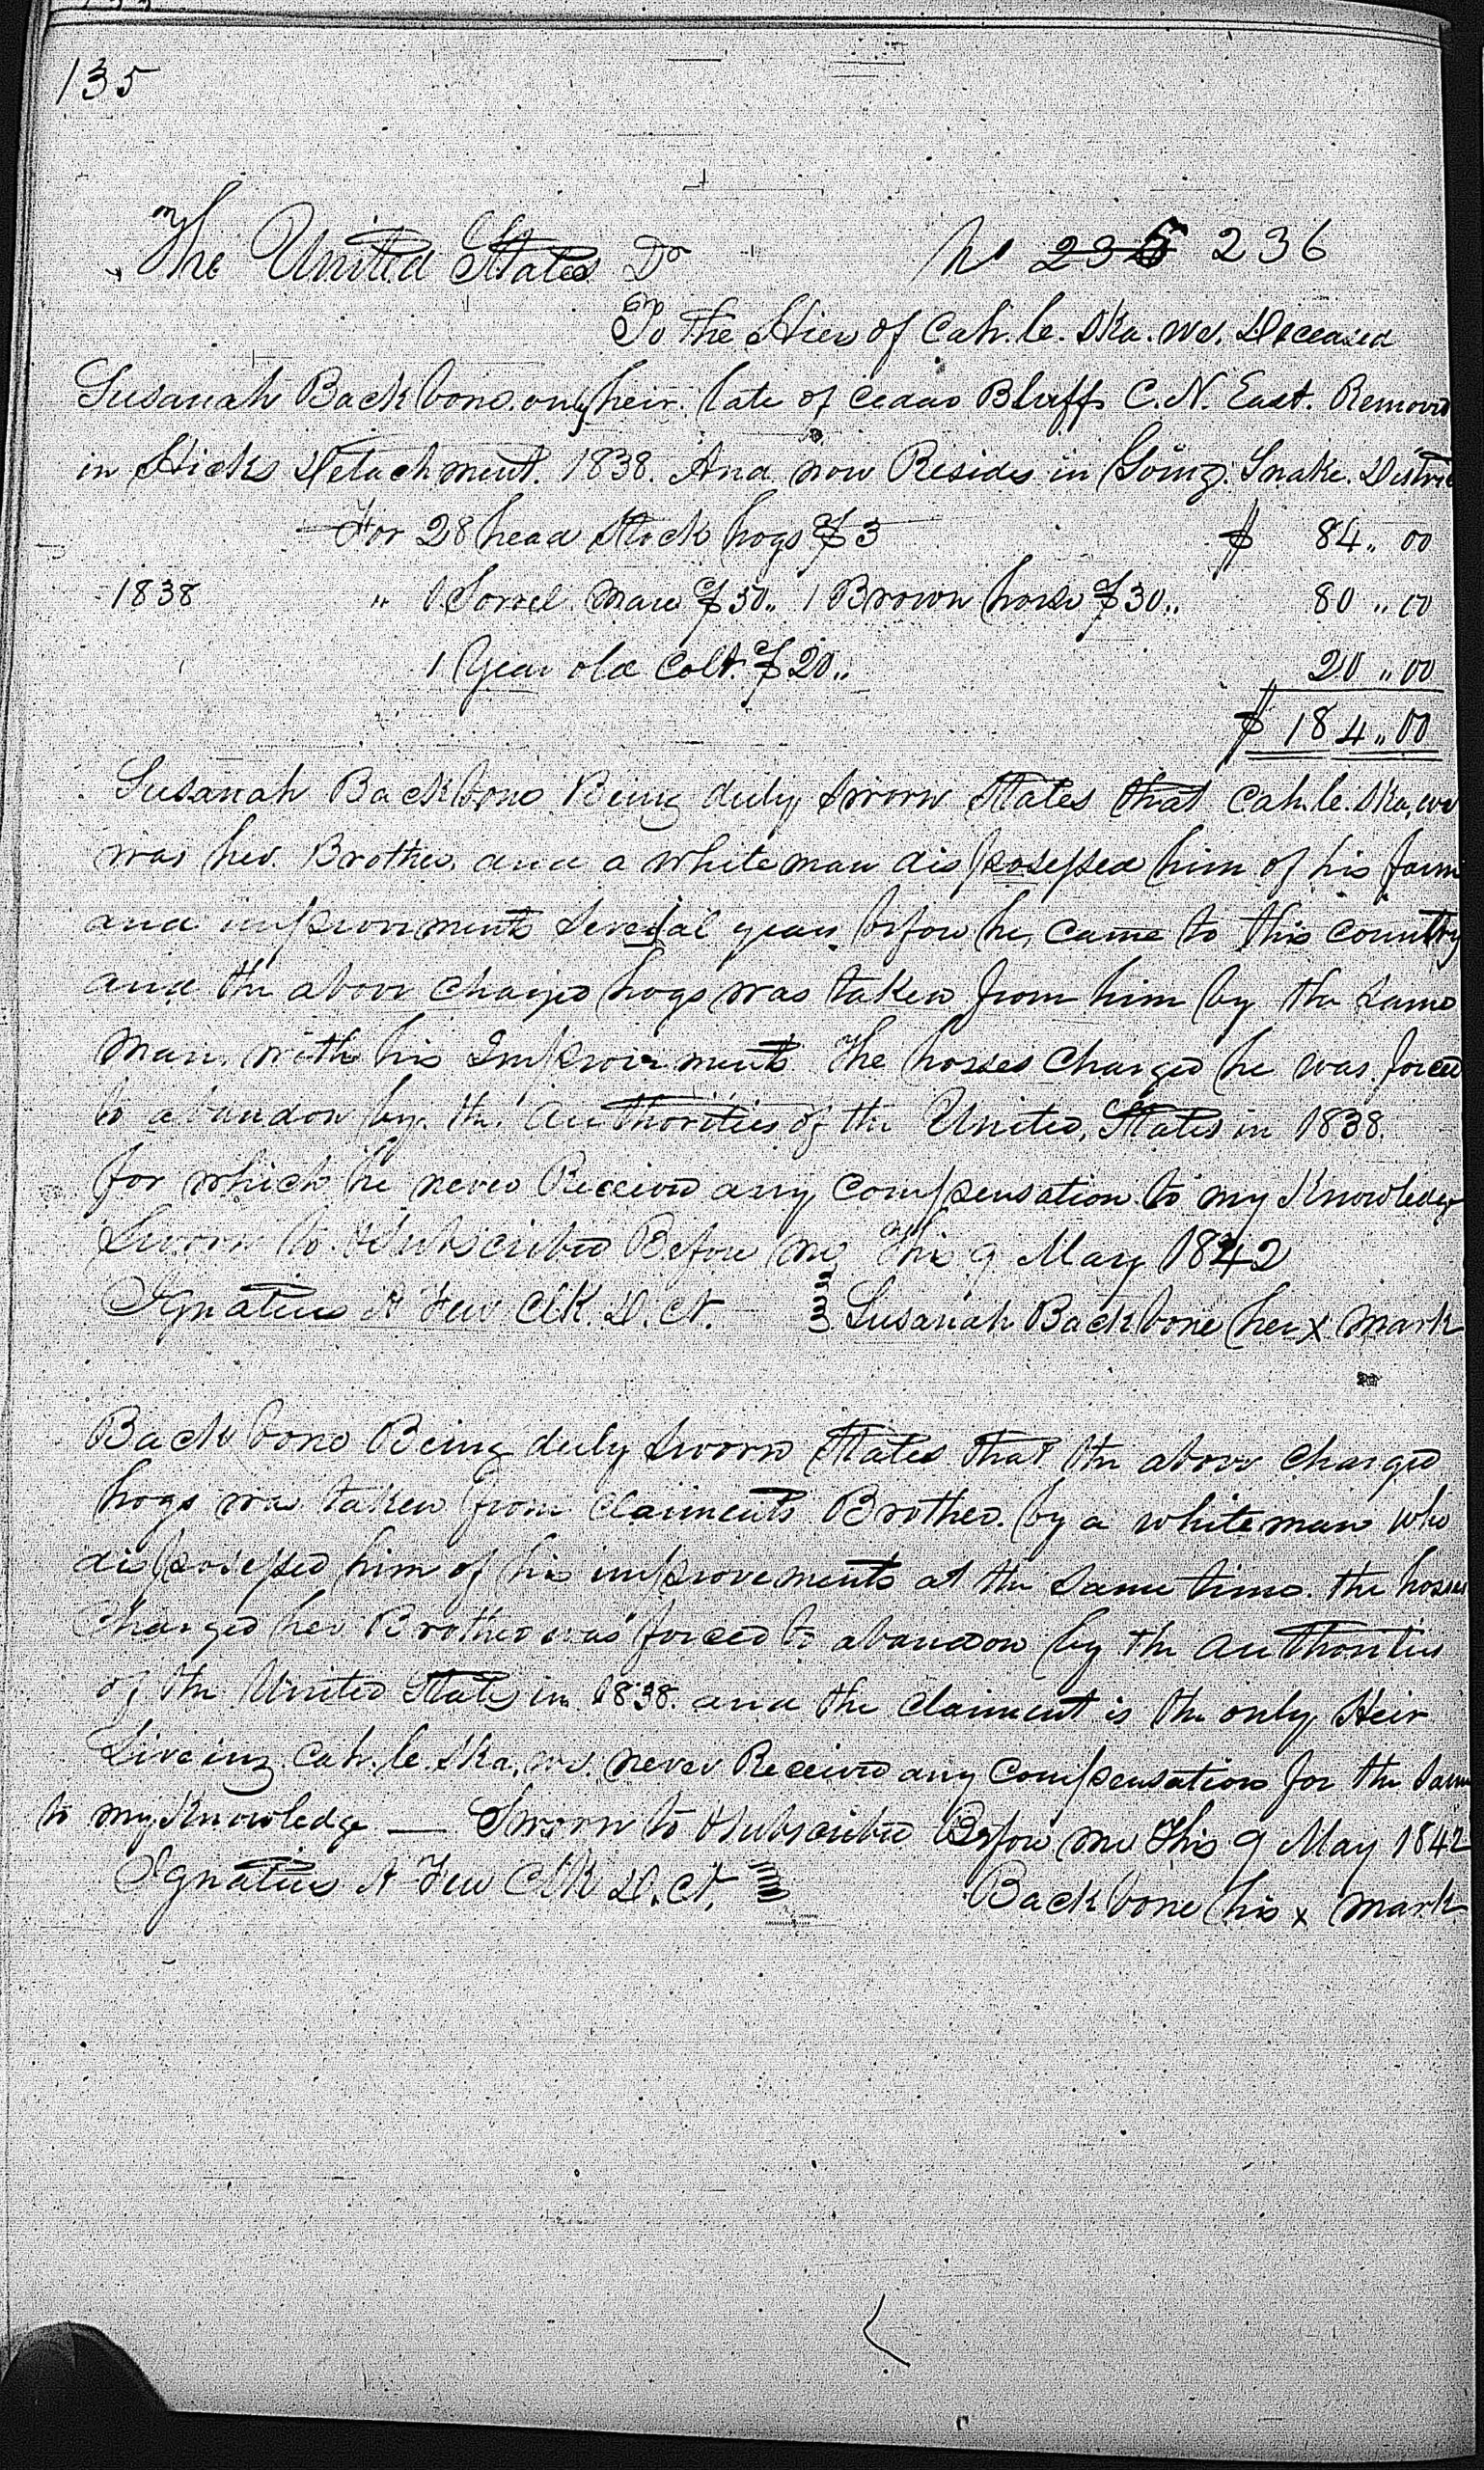 135
The United States Dr No 235 236
To the Hier of Cah.le.ska.we. Deceased
Susanah Backbone only heir. late of Cedar Bluff C.N. East. Removed
in Hicks Detachment. 1838. And now Resides in Going. Snake. District
For 28 head Stock hogs @ $3 $ 84.. 00
1838 " 1 Sorrel Mare $50.. 1 Brown horse $30.. 80 .. 00
1 Year old Colt. $20.. 20 .. 00
$ 184.. 00
Susanah Backbone Being duly Sworn States that Cah.le.ska.we
was her Brother and a whiteman dispossessed him of his farm
and improvements Several years before he came to this country
and the above charged hogs was taken from him by the same
man with his Improvements The horses charged he was forced
to abandon by the authorities of the United States in 1838.
for which he never Received any compensation to my Knowledge
Sworn to & Subscribed Before me This 9 May 1842
Ignatius A Few Clk. D. Ct. Susanah Backbone her x mark
Backbone Being duly Sworn States that the above charged
hogs was taken from Claiments Brother. by a whiteman who
dispossessed him of his improvements at the same time. the horses
Charged her Brother was forced to abandon by the authorities
of the United States in 1838. and the claiment is the only Heir
Liveing. Cah.le.ska.we. never Received any compensation for the same
to my Knowledge — Sworn to & Subscribed Before me This 9 May 1842
Ignatius A Few Clk D. Ct. Backbone his x mark